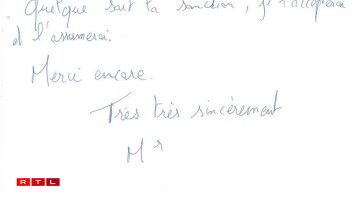 Quelque soit la sanction, je l'accepterai
et l'assumerai.
Merci encore.
Très très sincèrement
Mr
RTL